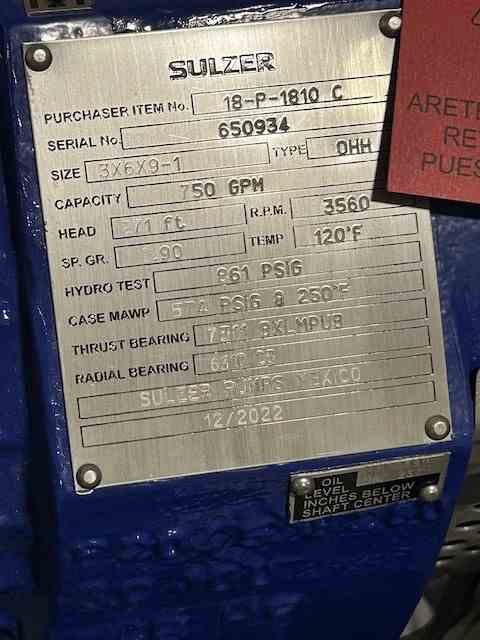 SULZER
PURCHASER ITEM No. 18-P-1810 C
SERIAL No. 650934
SIZE 3X6X9-1 TYPE OHH
CAPACITY 750 GPM
HEAD ft R.P.M. 3560
SP. GR. TEMP 120°F
HYDRO TEST 861 PSIG
CASE MAWP 574 PSIG @ 250°F
THRUST BEARING
RADIAL BEARING
SULZER PUMPS MEXICO
12/2022
ARETE
RE
PUES
OIL
LEVEL
INCHES BELOW
SHAFT CENTER